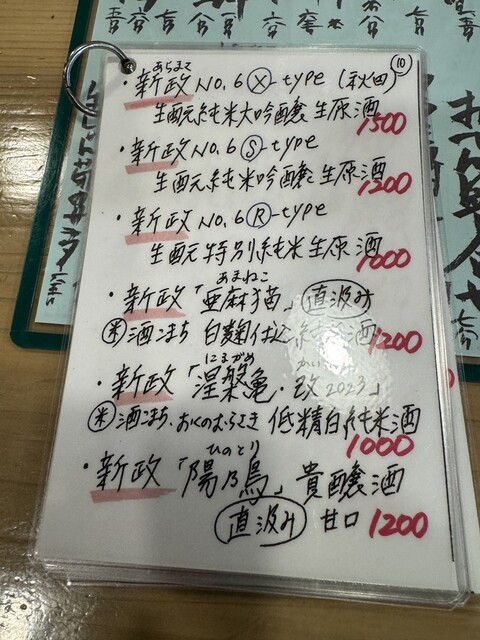 ⑩
あらまさ
・新政 No.6 Ⓧ-type (秋田)
生酛純米大吟醸生原酒
1500
・新政 No.6 Ⓢ-type
生酛純米吟醸生原酒
1200
・新政 No.6 Ⓡ-type
生酛特別純米生原酒
1000
あまねこ
・新政「亜麻猫」 直汲み
米 酒こまち 白麹仕込純米酒
1200
にるがめ かい
・新政「涅槃亀・改2023」
米 酒こまち、おくのむらさき 低精白純米酒
1000
ひのとり
・新政「陽乃鳥」貴醸酒
直汲み 甘口 1200